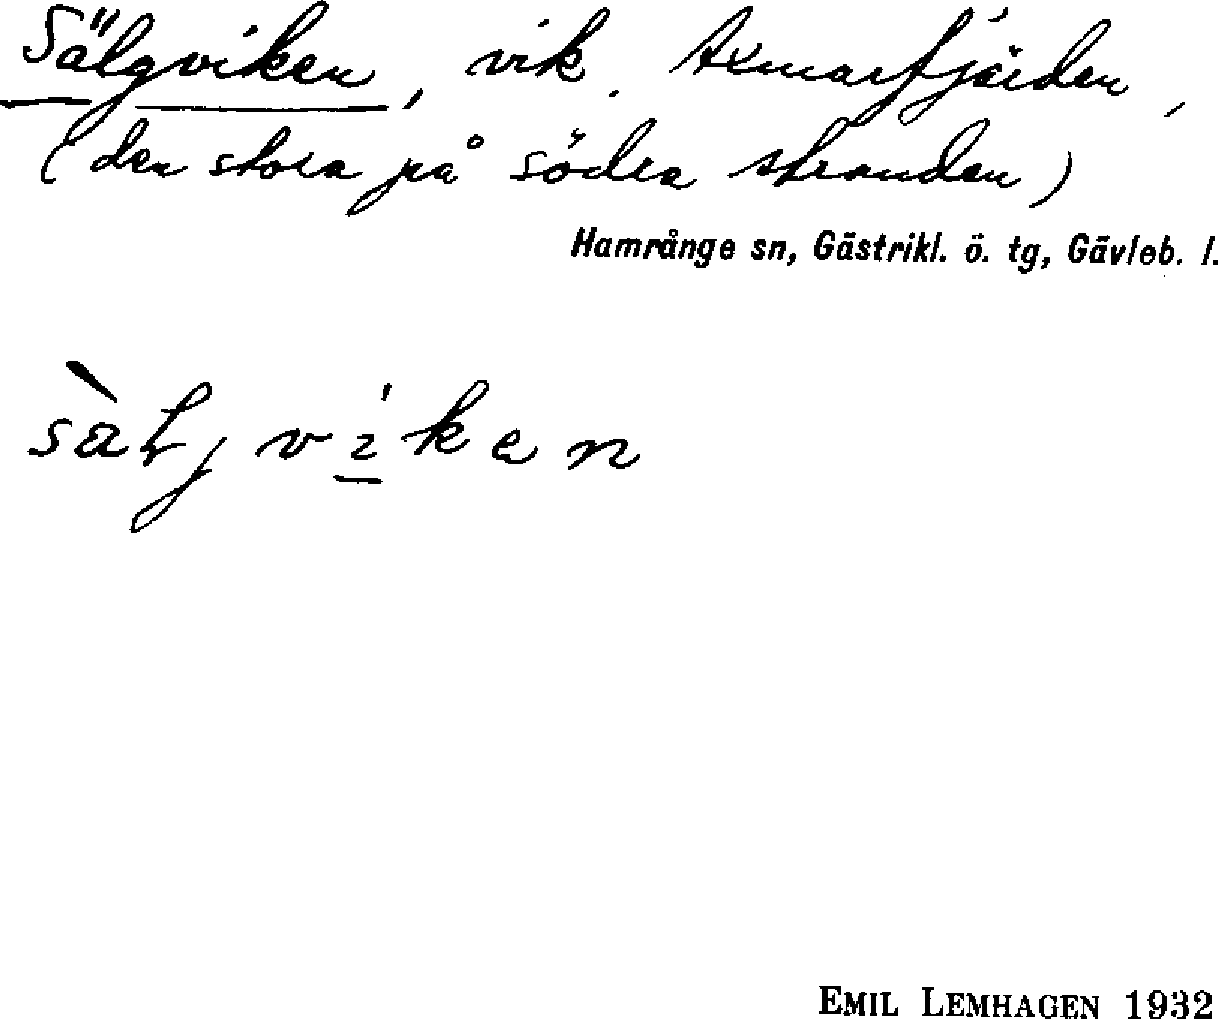 Sälgviken, vik. Axmarfjärden,
(den stora på södra stranden)
Hamrånge sn, Gästrikl. ö. tg, Gävleb. l.
sàlj víken
EMIL LEMHAGEN 1932